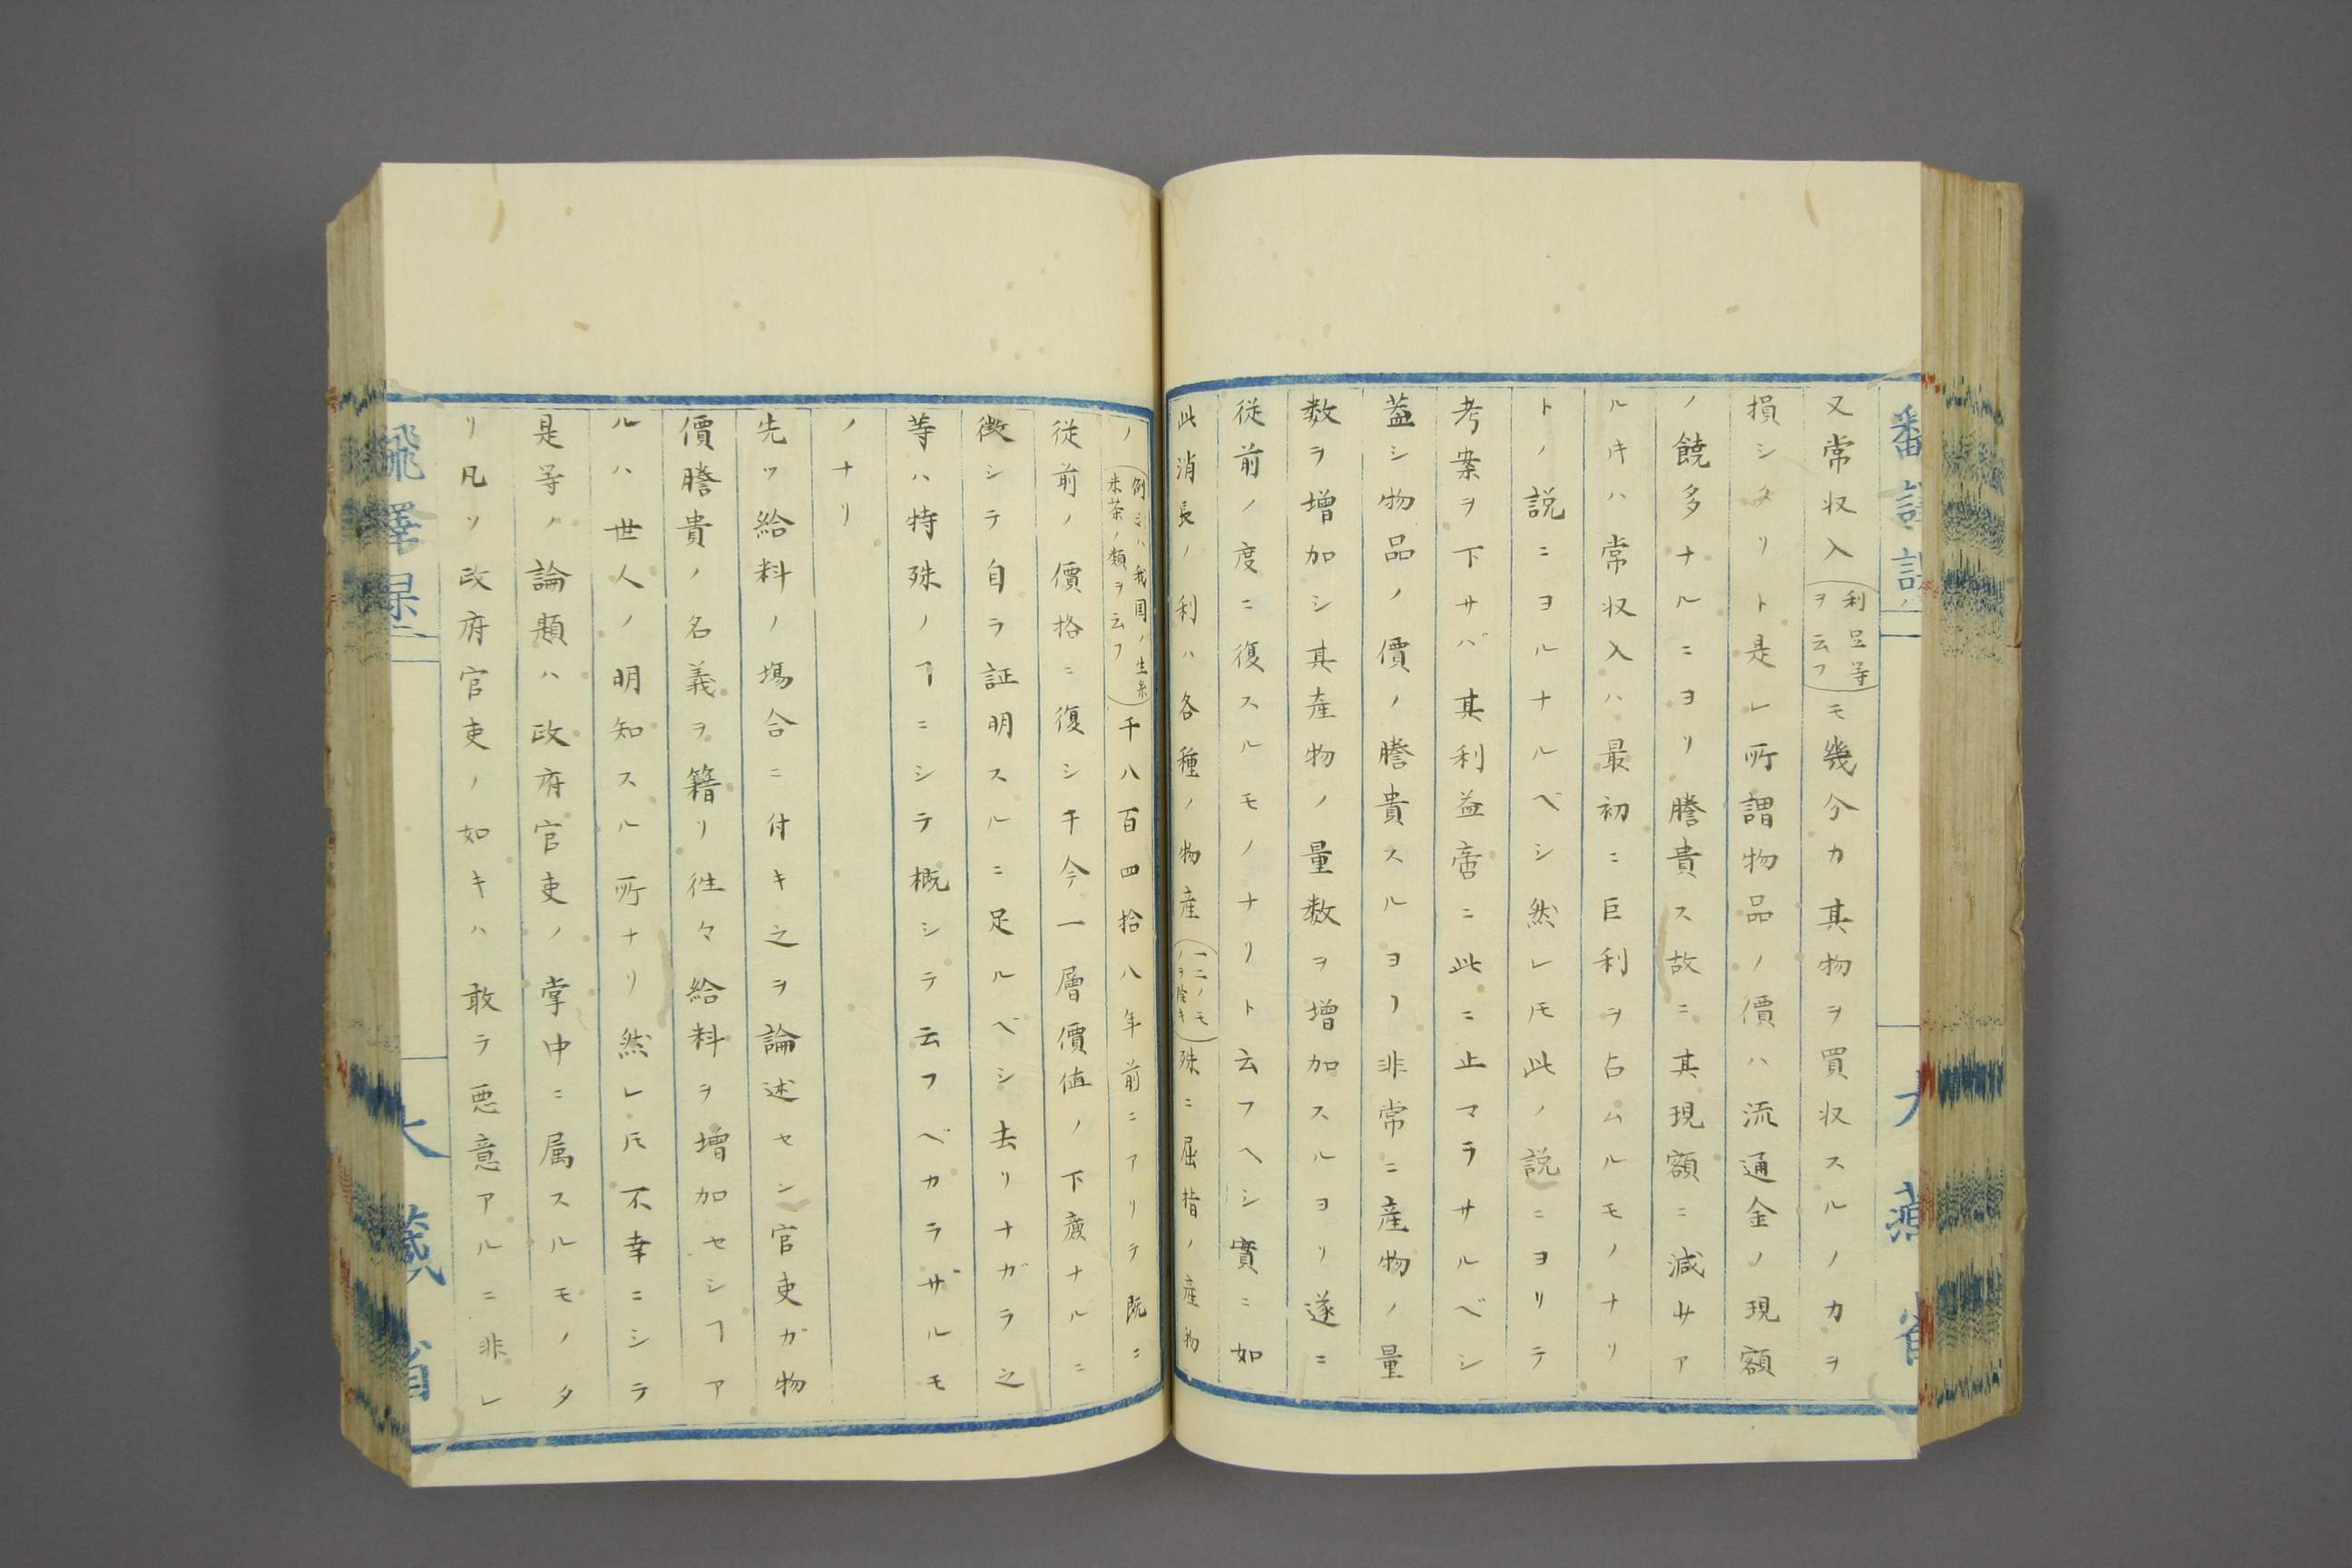 又常収入(利足等ヲ云フ)モ幾分カ其物ヲ買収スルノカヲ
損シタリト是レ所謂物品ノ價ハ流通金ノ現額
ノ饒多ナルニヨリ騰貴ス故ニ其現額ニ減サア
ルキハ常収入ハ最初ニ巨利ヲ占ムルモノナリ
トノ説ニヨルナルベシ然レ𪜈此ノ説ニヨリテ
考案ヲ下サバ其利益啻ニ此ニ止マラサルベシ
蓋シ物品ノ價ノ騰貴スルヨリ非常ニ産物ノ量
数ヲ増加シ其産物ノ量数ヲ増加スルヨリ遂ニ
従前ノ度ニ復スルモノナリト云フヘシ實ニ如
此消長ノ利ハ各種ノ物産(一二ノモノヲ除キ)殊ニ屈指ノ産物
ノ(例ヘハ我国ノ生糸米茶ノ類ヲ云フ)千八百四拾八年前ニアリテ既ニ
従前ノ價格ニ復シキ今一層價値ノ下廋ナルニ
徴シテ自ラ証明スルニ足ルベシ去リナガラ之
等ハ特殊ノヿニシテ概シテ云フベカラザルモ
ノナリ
先ツ給料ノ塲合ニ付キ之ヲ論述セン官吏ガ物
價騰貴ノ名義ヲ籍リ徃々給料ヲ増加セシヿア
ルハ世人ノ明知スル所ナリ然レ𪜈不幸ニシテ
是等ノ論題ハ政府官吏ノ掌中ニ属スルモノタ
リ凡ソ政府官吏ノ如キハ敢テ悪意アルニ非レ
大藏省